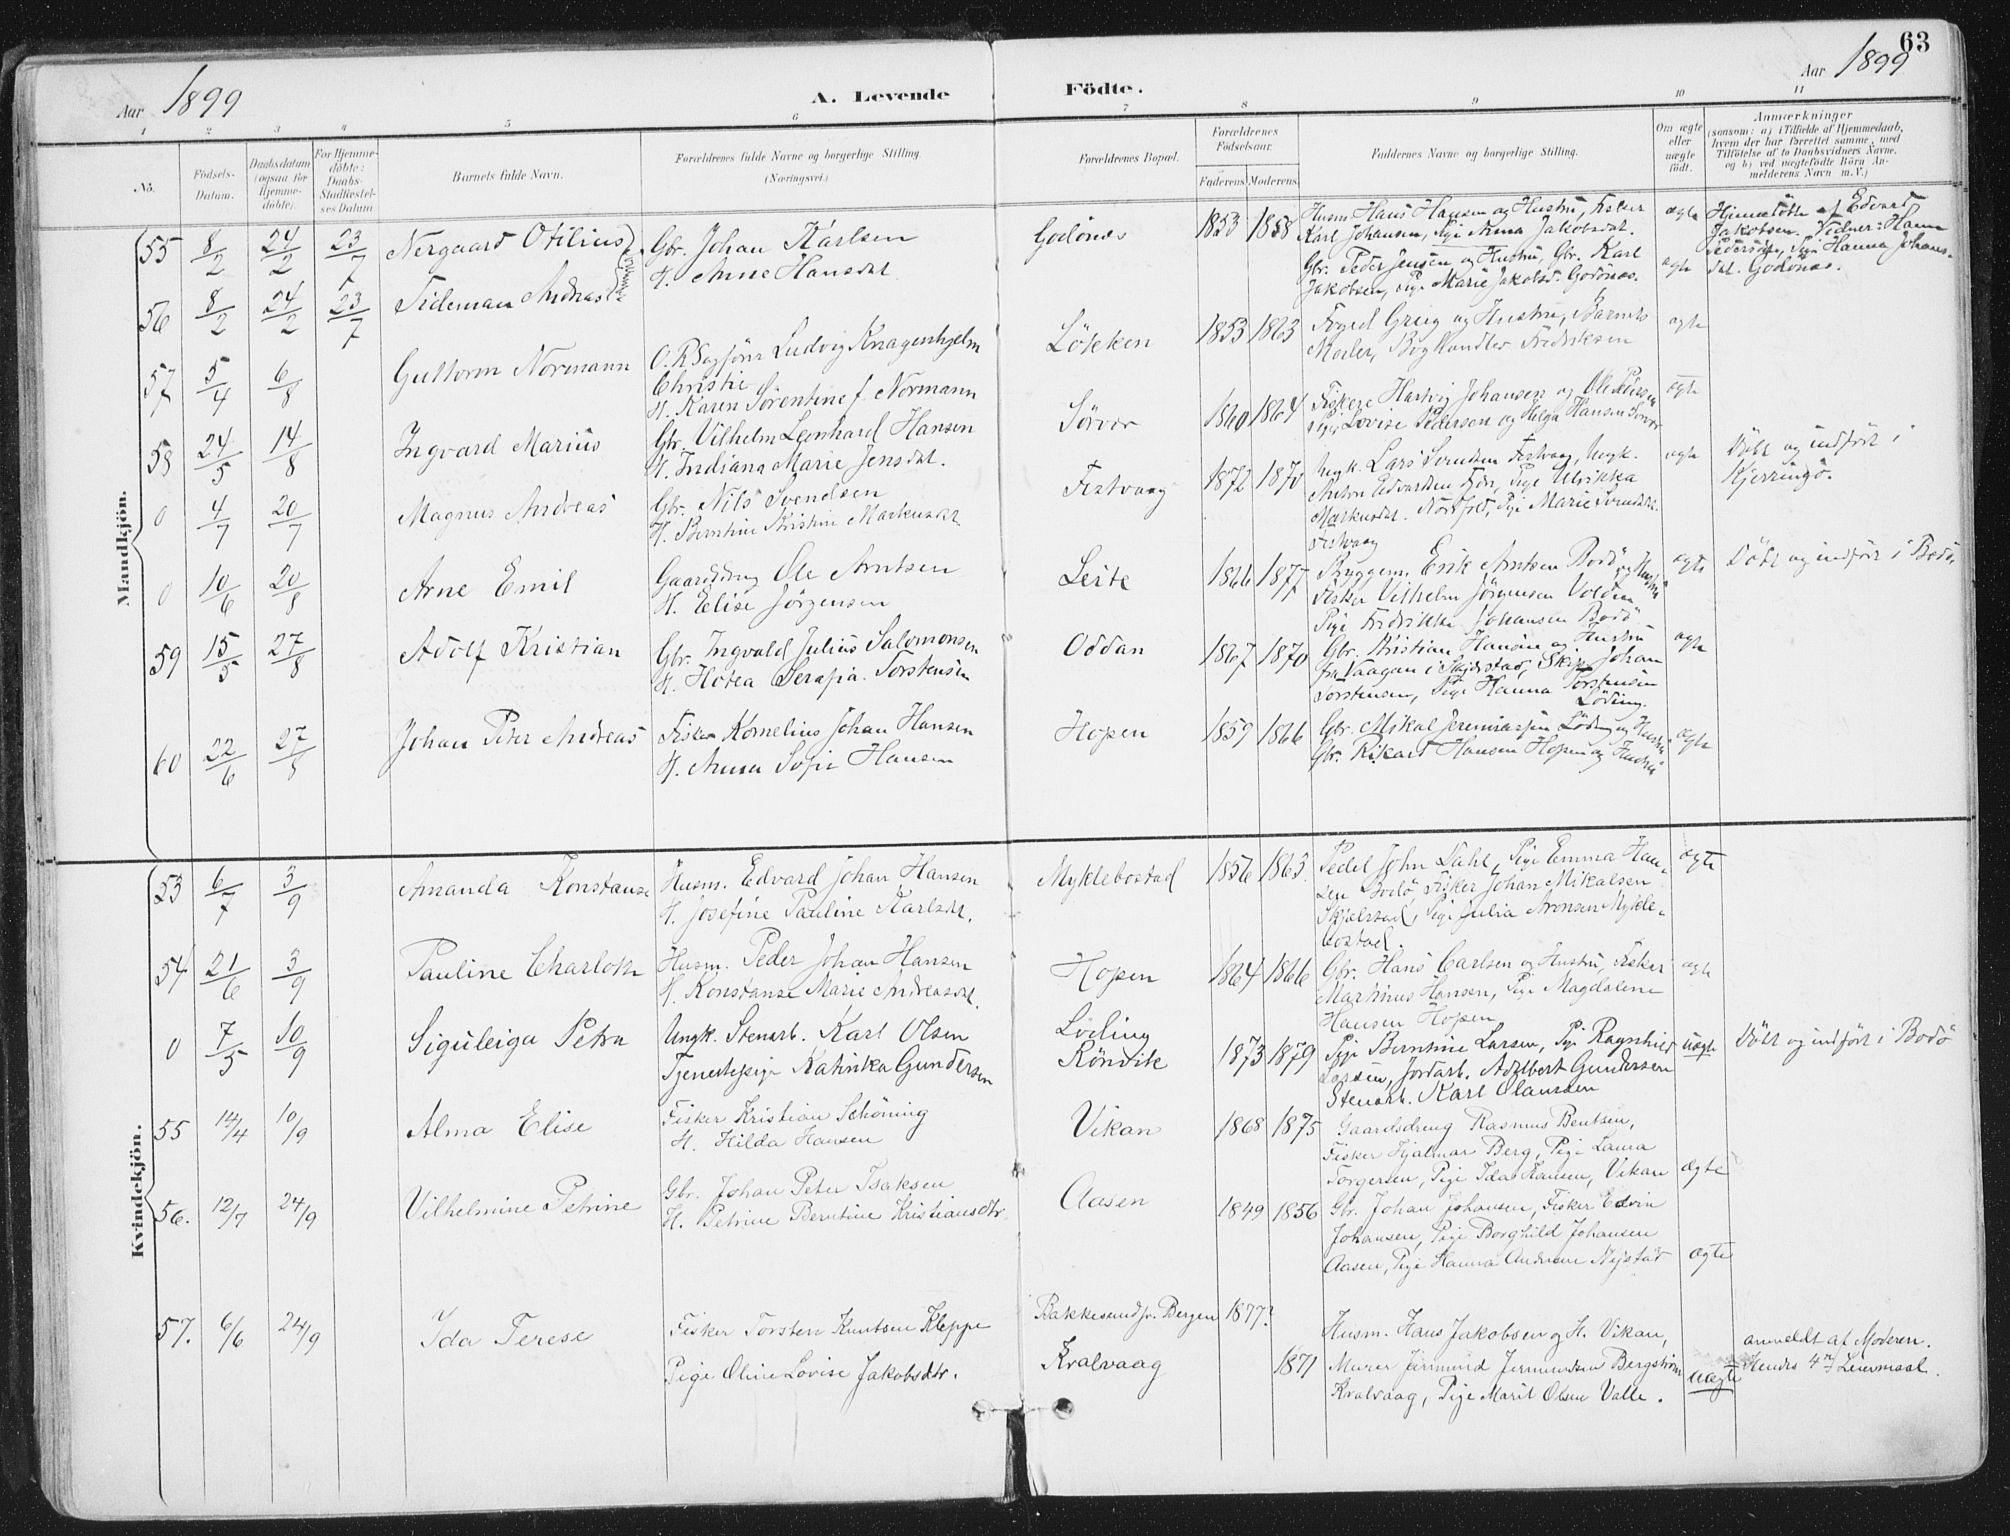 63
Aar 1899
A. Levende
Födte.
Aar 1899
1 2 3 4 5 6 7 8 9 10 11
No.
Födsels-Datum.
Daabsdatum (ogsaa for Hjemmedöbte).
For Hjemmedöbte: Daabs-Stadfæstelses Datum
Barnets fulde Navn.
Forældrenes fulde Navne og borgerlige Stilling.
(Næringsvei.)
Forældrenes Bopæl.
Forældrenes Födselsaar.
Faderens. Moderens.
Faddernes Navne og borgerlige Stilling.
Om ægte eller uægte födt.
Anmærkninger
(saasom: a) i Tilfælde af Hjemmedaab, hvem der har forrettet samme, med Tilföielse af to Daabsvidners Navne, og b) ved uægtefödte Börn Anmelderens Navn m. V.)
Mandkjön.
55 8/2 24/2 23/7 Nergaard Otilius
Gbr. Johan Karlsen
H. Anne Hansdat
Godönes 1853 1858
Husm Hans Hansen og Hustru, Fisker
Karl Johansen, Pige Anna Jakobsdat.
ægte
Hjemedöbt af Edvard
Jakobsen. Vidner: Hans
Pedersen, Pige Hanna Johans-
dat. Godönes.
56 8/2 24/2 23/7 Tideman Andreas
Gbr. Peder Jensen og Hustru, Gbr. Karl
Jakobsen, Pige Marie Jakobsd. Godönes.
ægte
57 5/4 6/8 Guttorm Normann
O.R.Sagförer Ludvig Knagenhjelm
Christie
H. Karen Sörentine f. Normann
Lökken 1853 1863
Foged Grieg og Hustru, Barnets
Moder, Boghandler Fredriksen
ægte
58 24/5 14/8 Ingvard Marius
Gbr. Vilhelm Leonhard Hansen
H. Indiana Marie Jensdat.
Sörvær 1860 1864
Fiskere Hartvig Johansen og Ole Pedersen
Piger Lovise Pederson og Helga Hansen Sörvær
ægte
0 4/7 20/7 Magnus Andreas
Gbr. Nils Svendsen
H. Berntine Kristine Markusdat
Festvaag 1872 1870
Ungk. Lars Svendsen Festvaag, Ungk.
Anton Edvardsen Fjær, Pige Ulrikka
Markusdat. Nordfold, Pige Marie Svendsdat.
Festvaag
ægte
Döbt og indfört i
Kjerringö.
0 10/6 20/8 Arne Emil
Gaarddreng Ole Arntsen
H. Elise Jörgensen
Leite 1866 1877
Bryggem. Erik Arntsen Bodö og Hustru
Fisker Vilhelm Jörgensen Volden
Pige Fredrikke Johansen Bodö
ægte
Döbt og indfört i Bodö.
59 15/5 27/8 Adolf Kristian
Gbr. Ingvald Julius Salomonsen
H. Hotea Serafia Torstensen
Oddan 1867 1870
Gbr. Kristian Hansen og Hustru
fra Vaagan i Skjerstad, Skip. Johan
Torstensen, Pige Hanna Torstensen
Löding.
ægte
60 22/6 27/8 Johan Peter Andreas
Fisker Kornelius Johan Hansen
H. Anna Sofie Hansen
Hopen 1859 1866
Gbr. Mikal Jeremiassen Löding og Hustru
Gbr. Rikart Hansen Hopen og Hustru
ægte
Kvindekjön.
53 6/7 3/9 Amanda Konstanse
Husm. Edvard Johan Hansen
H. Josefine Pauline Karlsdat.
Myklebostad 1856 1863.
Pedel John Dahl, Pige Emma Han-
sen Bodö, Fisker Johan Mikalsen
Skjelstad, Pige Julia Arensen Mykle-
bostad.
ægte
54 21/6 3/9 Pauline Charlotte
Husm. Peder Johan Hansen
H. Konstanse Marie Andreasdat.
Hopen 1864 1866
Gbr. Hans Carlsen og Hustru, Fisker
Martinus Hansen, Pige Magdalene
Hansen Hopen
ægte
0 7/5 10/9 Siguleiga Petra
Ungk. Stenarb. Karl Olsen
Tjenestepige Katinka Gundersen
Löding
Rönvik 1873 1879
Pige Berntine Larsen, Pige Ragnhild
Larsen, Jordarb. Adelbert Gundersen
Stenarb. Karl Olaussen
uægte
Döbt og indfört i Bodö
55 14/4 10/9 Alma Elise
Fisker Kristian Schöning
H. Hilda Hansen
Vikan 1868 1875
Gaardsdreng Rasmus Bentsen,
Fisker Hjalmar Berg, Pige Laura
Torgersen, Pige Ida Hansen, Vikan
ægte
56. 12/7 24/9 Vilhelmine Petrine
Gbr. Johan Peter Isaksen
H. Petrine Berntine Kristiansdtr.
Aasen 1849 1856
Gbr. Johan Johansen, Fisker Edvin
Johansen, Pige Borghild Johansen
Aasen, Pige Hanna Andersen Nystad
ægte
57. 6/6 24/9 Ida Terese
Fisker Torsten Knutsen Kleppe
Pige Oline Lovise Jakobsdtr.
Bakkesund pr. Bergen 1877?
Kvalvaag 1871
Husm. Hans Jakobsen og H. Vikan,
Murer Jermund Jermundsen Bergström
Kvalvaag, Pige Marit Olsen Valle.
uægte
anmeldt af Moderen.
Hendes 4de Leiermaal.